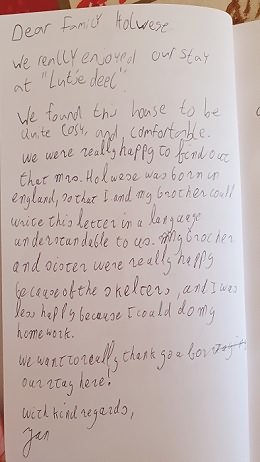 Dear Family Holwese
we really enjoyed our stay
at "Lutje deel".
We found this house to be
quite cosy, and comfortable.
we were really happy to find out
that mrs. Holwese was born in
england, so that I and my brother could
write this letter in a language
understandable to us. My brother
and sister were really happy
because of the skelters, and I was
less happy because I could do my
homework.
we want to really thank you for
our stay here!
with kind regards,
Jan